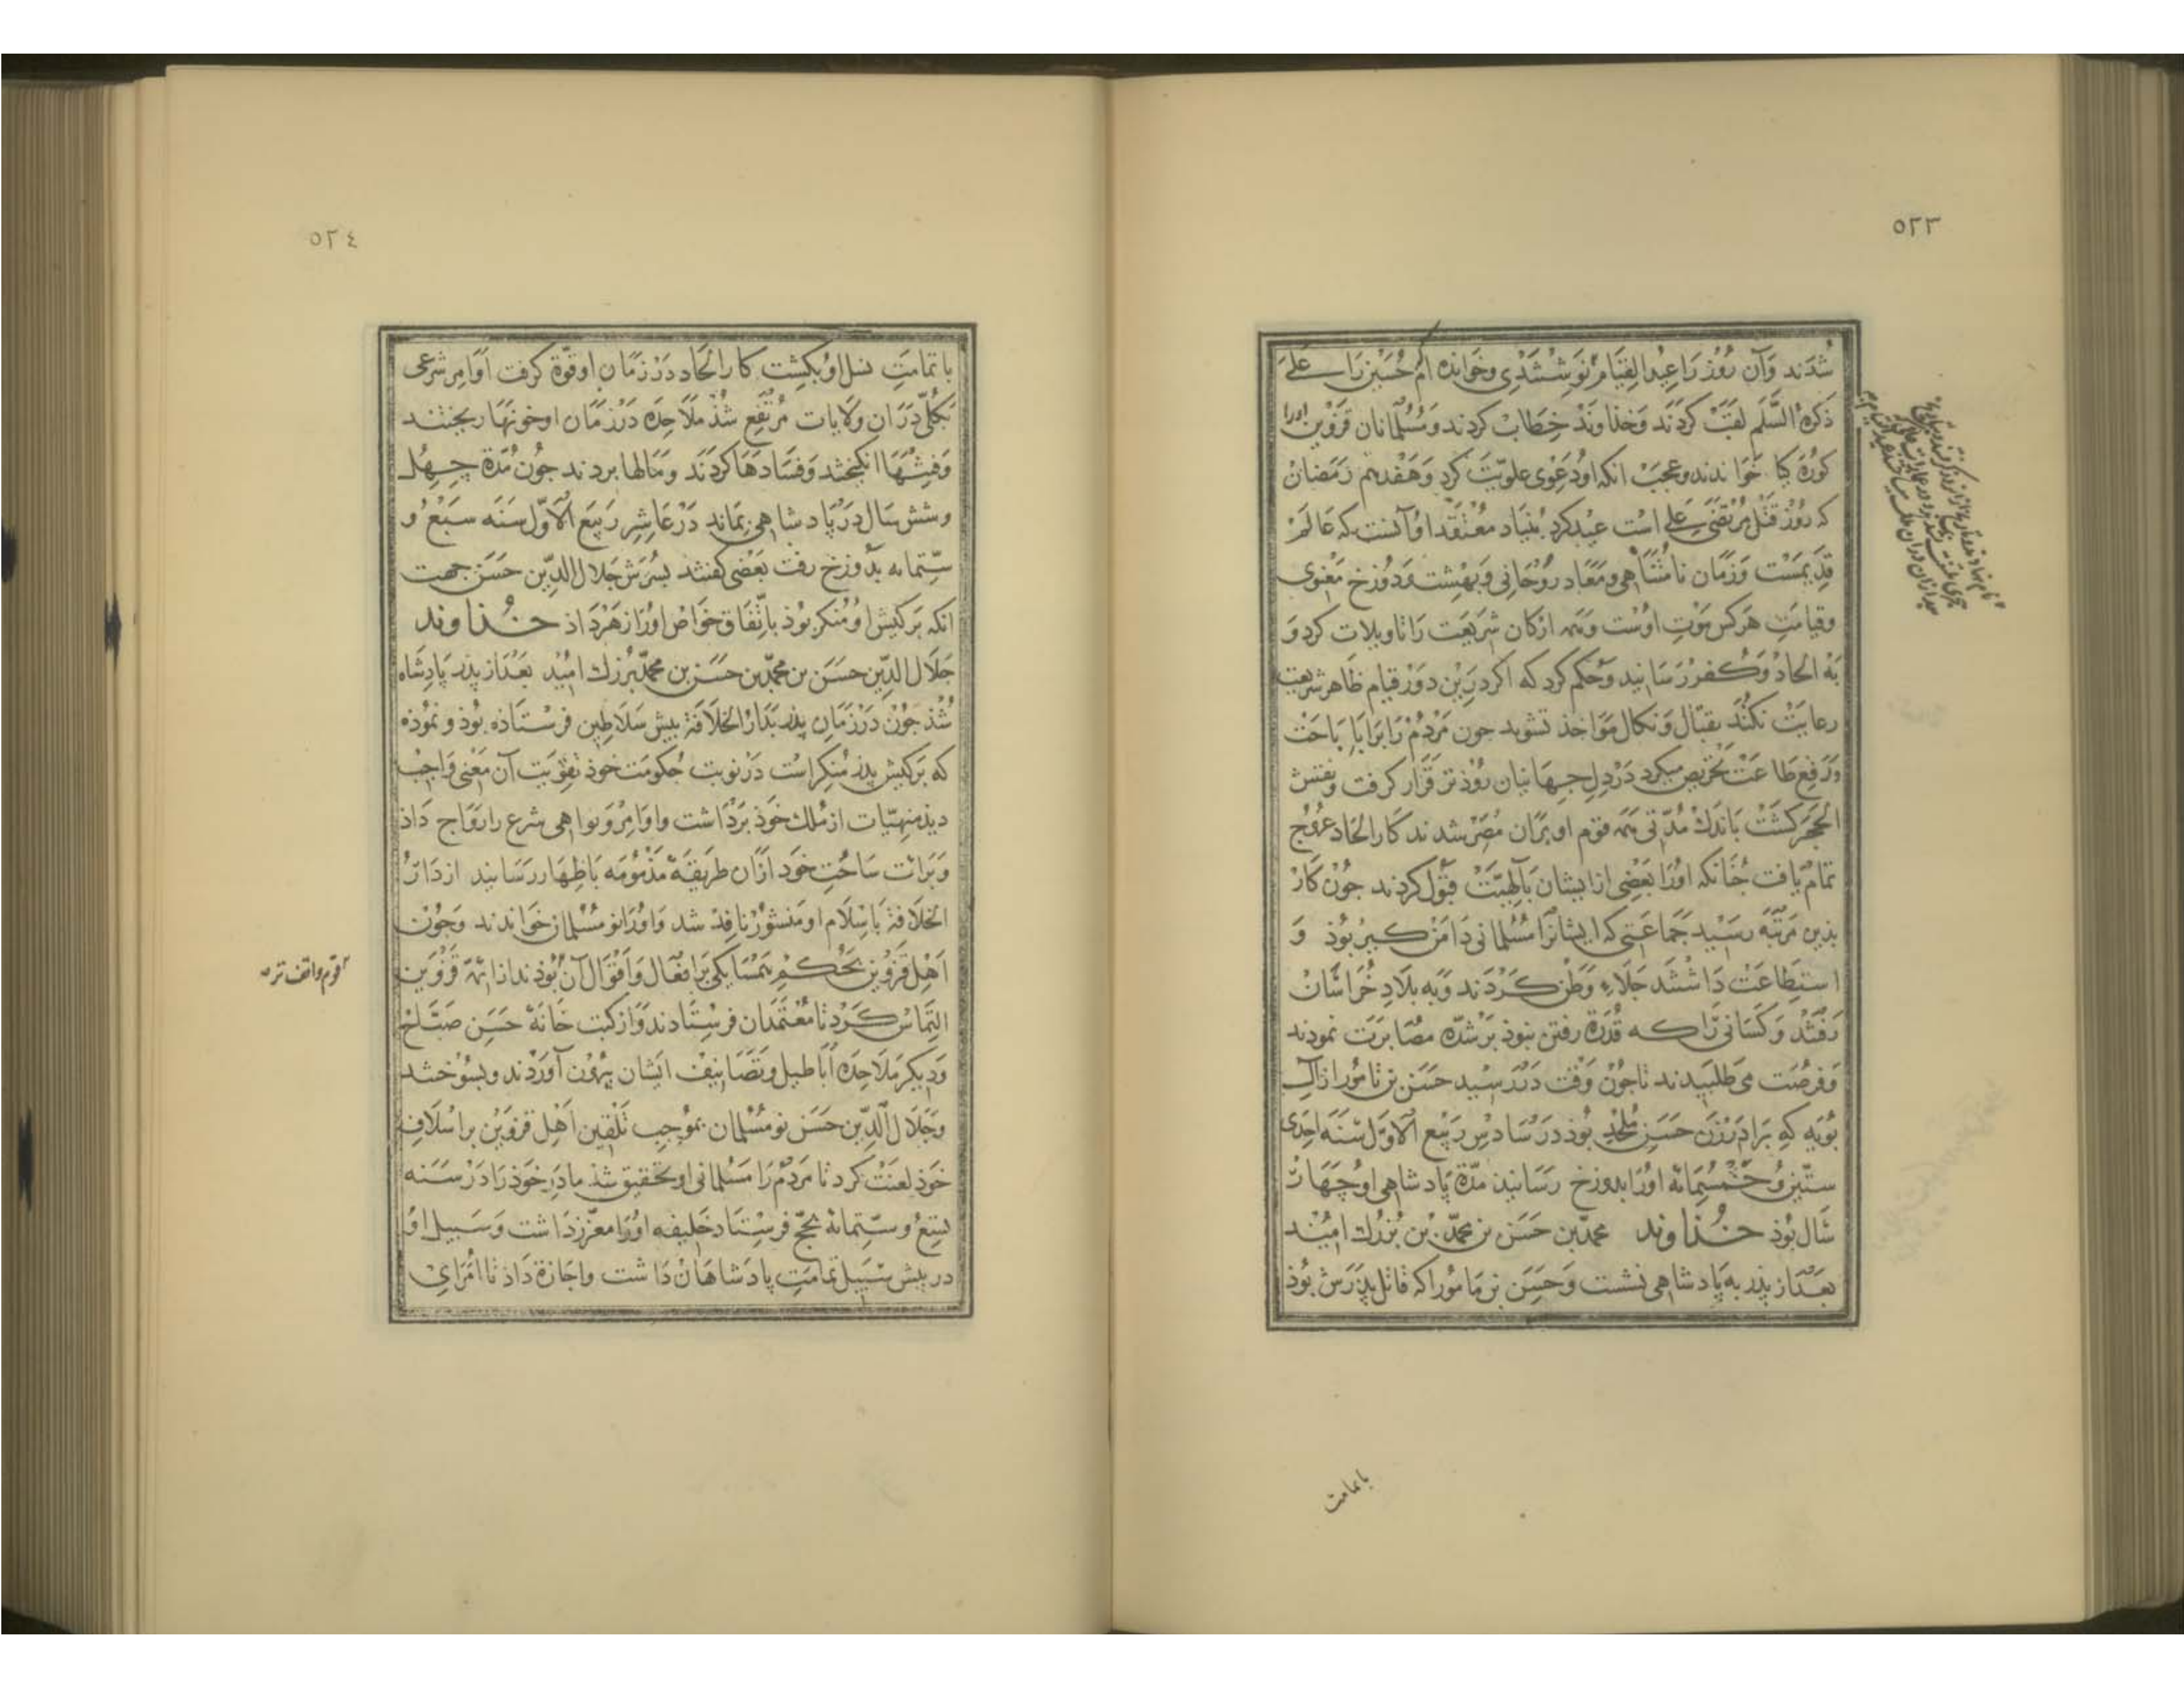 ٥٢٣
شدند و آن روز را عید القیام نوشتندی و خوانده ام حسین را علی
ذکره السلم لقب کردند و خذاوند خطاب کردند و مسلمانان قزوین اورا
کوره کیا خواندند و عجب انکه او دعوی علویت کرد و هفدهم رمضان
که روز قتل مرتضی علی است عید کرد بنیاد معتقد او آنست که عالم
قدیمست و زمان نامتناهی و معاد روحانی و بهشت و دوزخ معنوی
و قیامت هرکس موت اوست و همه ارکان شریعت را تاویلات کرد و
به الحاد و کفر رسانید و حکم کرد که اکر درین دور قیام ظاهر شریعت
رعایت نکند بقتال و نکال مواخذ تشوید جون مردم را برابا باحت
و رفع طاعت تحریص میکرد در دل جهانیان روذتر قرار کرفت و نقش
الحجر کشت باندک مدتی همه قوم او بران مصر شدند کار الحاد عروج
تمام یافت جنانکه اورا بعضی از ایشان بآلهیت قبول کردند جون کار
بذین مرتبه رسید جماعتی که ایشانرا مسلمانی دامن کیر بوذ و
استطاعت داشتند جلاء وطن کردند و به بلاد خراسان
رفتند و کسانی را که قدرة رفتن نبوذ بر شده مصابرت نمودند
و فرصت می طلبیدند تا جون وقت در رسید حسن بن نامور از آل
بویه که برادر زن حسن ملحد بوذ در سادس ربیع الاول سنه احدی
ستین و خمسمائه اورا بدوزخ رسانیذ مدة پادشاهی او چهار
سال بوذ خذاوند محمد بن حسن بن محمد بن بزرك امید
بعد از پذر به پادشاهی نشست و حسن بن نامورا که قاتل پذرش بوذ
بتمامت
٥٢٤
با تمامت نسل او بکشت کار الحاد در زمان او قوة کرفت اوامر شرعی
بکلی در ان ولایات مرتفع شذ ملاحده در زمان او خونها ریختند
و فتنها انکیختند و فسادها کردند و مالها بردند جون مدة چهل
و شش سال در پادشاهی بماند در عاشر ربیع الاول سنه سبع و
ستمائه بدوزخ رفت بعضی کفتند بسرش جلال الدین حسن جهت
انکه بر کیش او منکر بوذ باتفاق خواص اورا زهر داذ خذاوند
جلال الدین حسن بن محمد بن حسن بن محمد بزرك امید بعد از پذر پادشاه
شذ جون در زمان پذر بدار الخلافة بیش سلاطین فرستاذه بوذ و نموذه
که بر کیش پذر منکر است در نوبت حکومت خوذ تقویت آن معنی واجب
دیذ منهیات از ملك خوذ برداشت و اوامر و نواهی شرع را رواج داذ
و برائت ساحت خود از ان طریقه مذمومه باظهار رسانید از دار
الخلافة باسلام او منشور نافذ شد و اورا نو مسلمان خواندند و جون
اهل قزوین بحکم همسایکی بر افعال و اقوال آن بوذند از ائمه قزوین
التماس کرد تا معتمدان فرستادند و از کتب خانه حسن صباح
و دیکر ملاحده اباطیل و تصانیف ایشان بیرون آوردند و بسوختند
و جلال الدین حسن نو مسلمان بموجب تلقین اهل قزوین بر اسلاف
خوذ لعنت کرد تا مردم را مسلمانی او تحقیق شذ مادر خوذ را در سنه
تسع و ستمائه بحج فرستاد خلیفه اورا معزز داشت و سبیل او
در پیش سبیل تمامت پادشاهان داشت و اجازة داذ تا امرای
قوم واقف تر